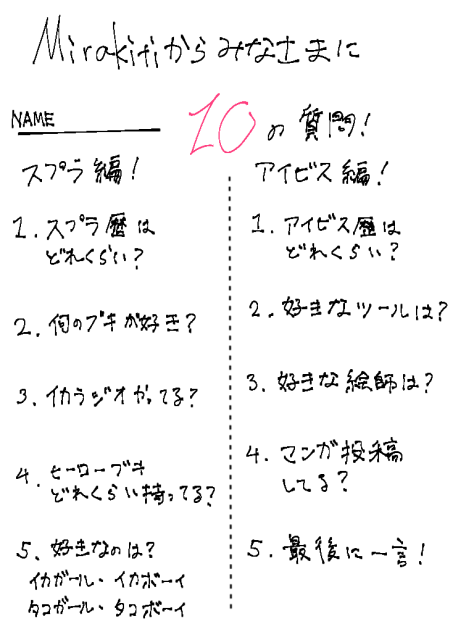 Mirakitiからみなさまに
NAME
10の質問!
スプラ編!
1. スプラ歴は
どれくらい?
2. 何のブキが好き?
3. イカラジオやってる?
4. ヒーローブキ
どれくらい持ってる?
5. 好きなのは?
イカガール・イカボーイ
タコガール・タコボーイ
アイビス編!
1. アイビス歴は
どれくらい?
2. 好きなツールは?
3. 好きな絵師は?
4. マンガ投稿
してる?
5. 最後に一言!